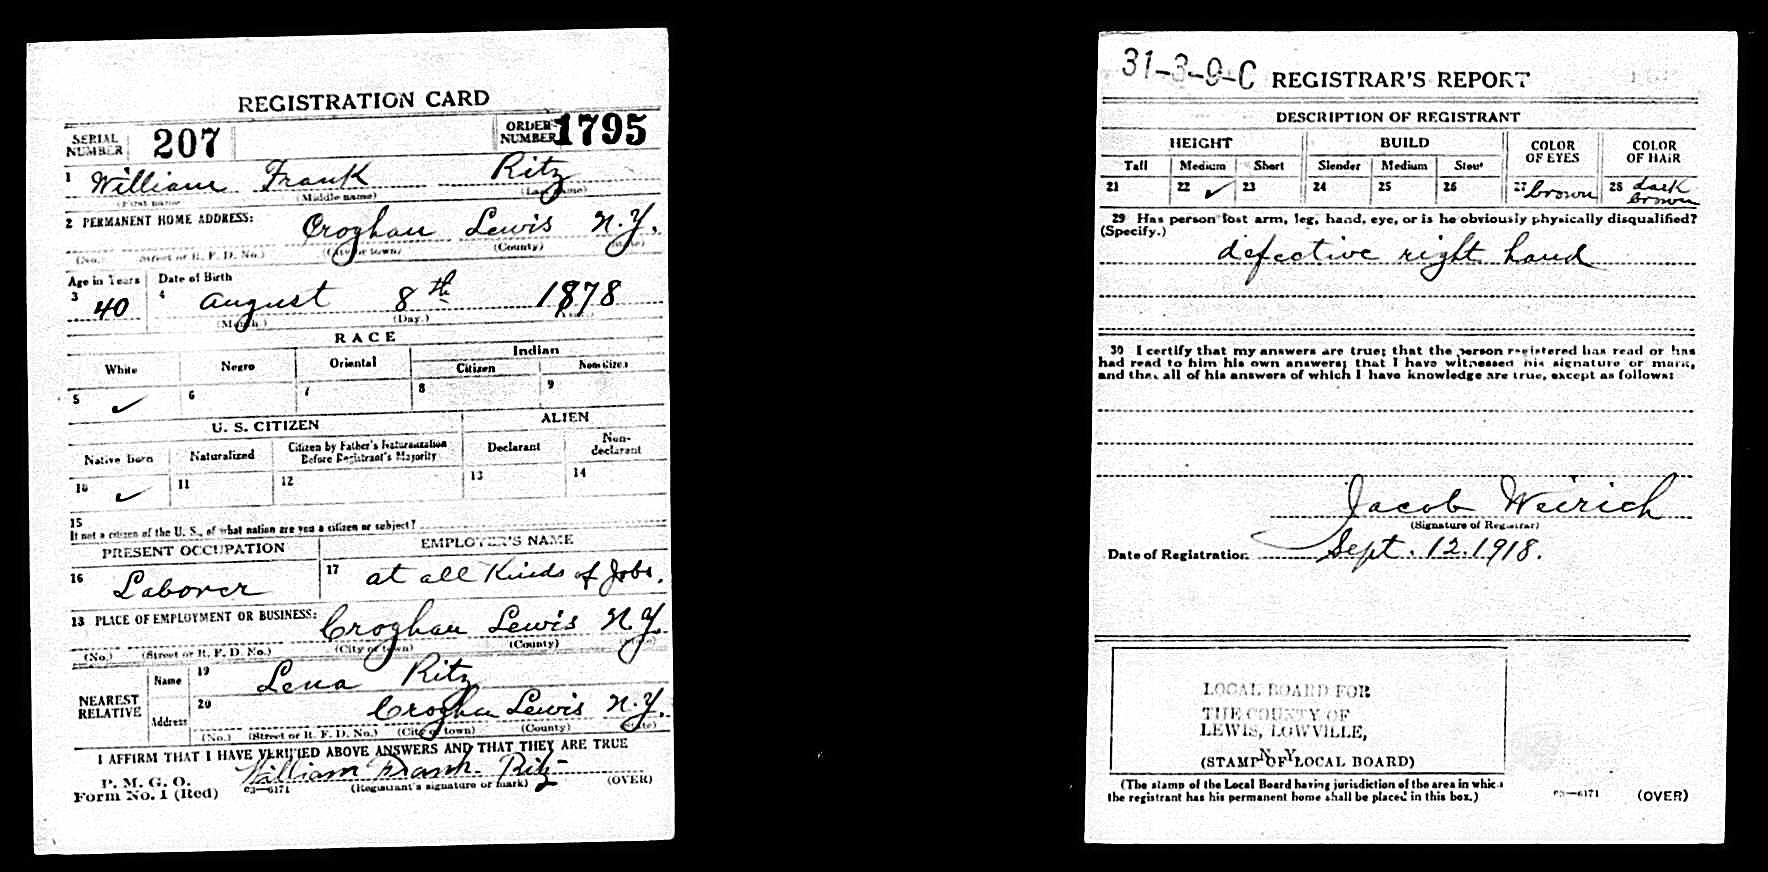 REGISTRATION CARD
SERIAL NUMBER 207 ORDER NUMBER 1795
1 William Frank Ritz
(First name) (Middle name) (Last name)
2 PERMANENT HOME ADDRESS:
Croghan Lewis N.Y.
(No.) (Street or R. F. D. No.) (City or town) (County) (State)
Age in Years Date of Birth
3 40 4 August 8th 1878
(Month.) (Day.) (Year.)
RACE
White Negro Oriental Indian
Citizen Noncitizen
5 ✓ 6 7 8 9
U. S. CITIZEN ALIEN
Native born Naturalized Citizen by Father's Naturalization Before Registrant's Majority Declarant Non-declarant
10 ✓ 11 12 13 14
15
If not a citizen of the U. S., of what nation are you a citizen or subject?
PRESENT OCCUPATION EMPLOYER'S NAME
16 Laborer 17 at all Kinds of Jobs.
18 PLACE OF EMPLOYMENT OR BUSINESS:
Croghan Lewis N.Y.
(No.) (Street or R. F. D. No.) (City or town) (County) (State)
NEAREST RELATIVE
Name 19 Lena Ritz
Address 20 Croghan Lewis N.Y.
(No.) (Street or R. F. D. No.) (City or town) (County) (State)
I AFFIRM THAT I HAVE VERIFIED ABOVE ANSWERS AND THAT THEY ARE TRUE
P. M. G. O.
Form No. 1 (Red) 03—6171 William Frank Ritz
(Registrant's signature or mark) (OVER)
31-3-9-C REGISTRAR'S REPORT
DESCRIPTION OF REGISTRANT
HEIGHT BUILD COLOR OF EYES COLOR OF HAIR
Tall Medium Short Slender Medium Stout
21 22 ✓ 23 24 25 26 27 brown 28 dark brown
29 Has person lost arm, leg, hand, eye, or is he obviously physically disqualified?
(Specify.)
defective right hand
30 I certify that my answers are true; that the person registered has read or has
had read to him his own answers; that I have witnessed his signature or mark,
and that all of his answers of which I have knowledge are true, except as follows:
Jacob Weirich
(Signature of Registrar)
Date of Registration Sept. 12. 1918.
LOCAL BOARD FOR
THE COUNTY OF
LEWIS, LOWVILLE,
N. Y.
(STAMP OF LOCAL BOARD)
(The stamp of the Local Board having jurisdiction of the area in which
the registrant has his permanent home shall be placed in this box.)
03—6171 (OVER)